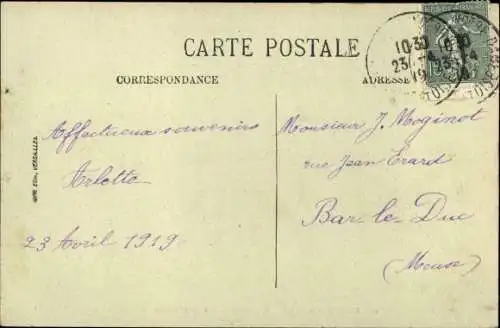 CARTE POSTALE
CORRESPONDANCE
ADRESSE
Affectueux souvenirs
Arlette
23 Avril 1919
Monsieur J. Moginot
rue Jean Erard
Bar-le-Duc
(Meuse)
10 30
23